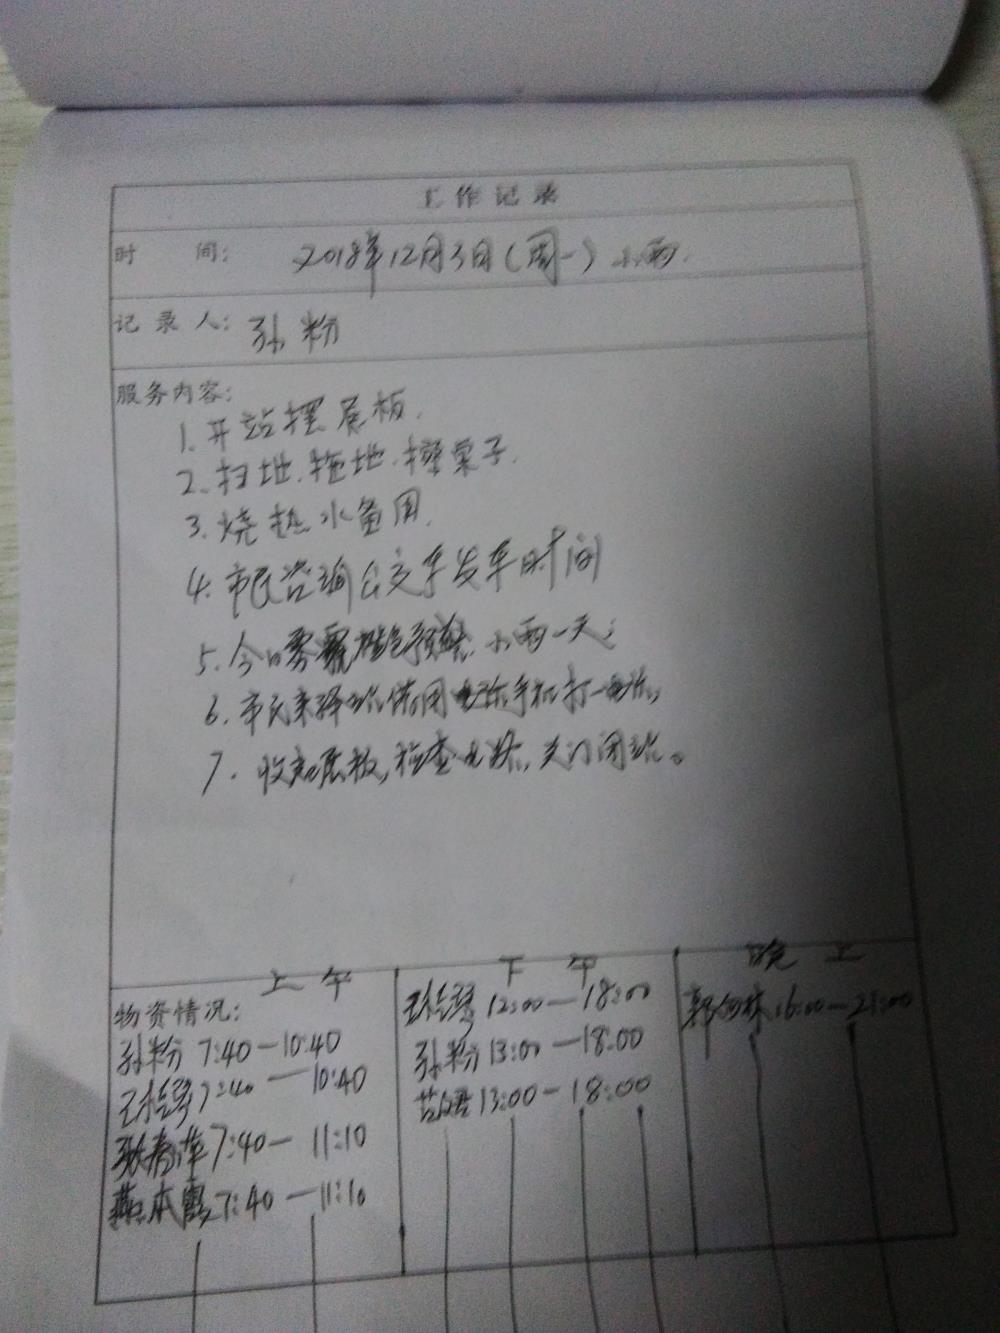 工作记录
时 间: 2018年12月3日(周一) 小雨.
记录人: 孙粉
服务内容:
1. 开站摆展板.
2. 扫地.拖地.擦桌子.
3. 烧热水备用.
4. 市民咨询公交车发车时间
5. 今日雾霾橙色预警,小雨一天;
6. 市民来驿站借用电话手机打电话;
7. 收起展板,检查电路,关门闭站。
上午 下午 晚上
物资情况:
孙粉 7:40—10:40
7:40—10:40
张春萍 7:40—11:10
燕本霞 7:40—11:10
12:00—18:00
孙粉 13:00—18:00
13:00—18:00
16:00—21:00